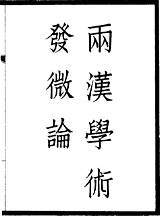 兩漢學術
發微論